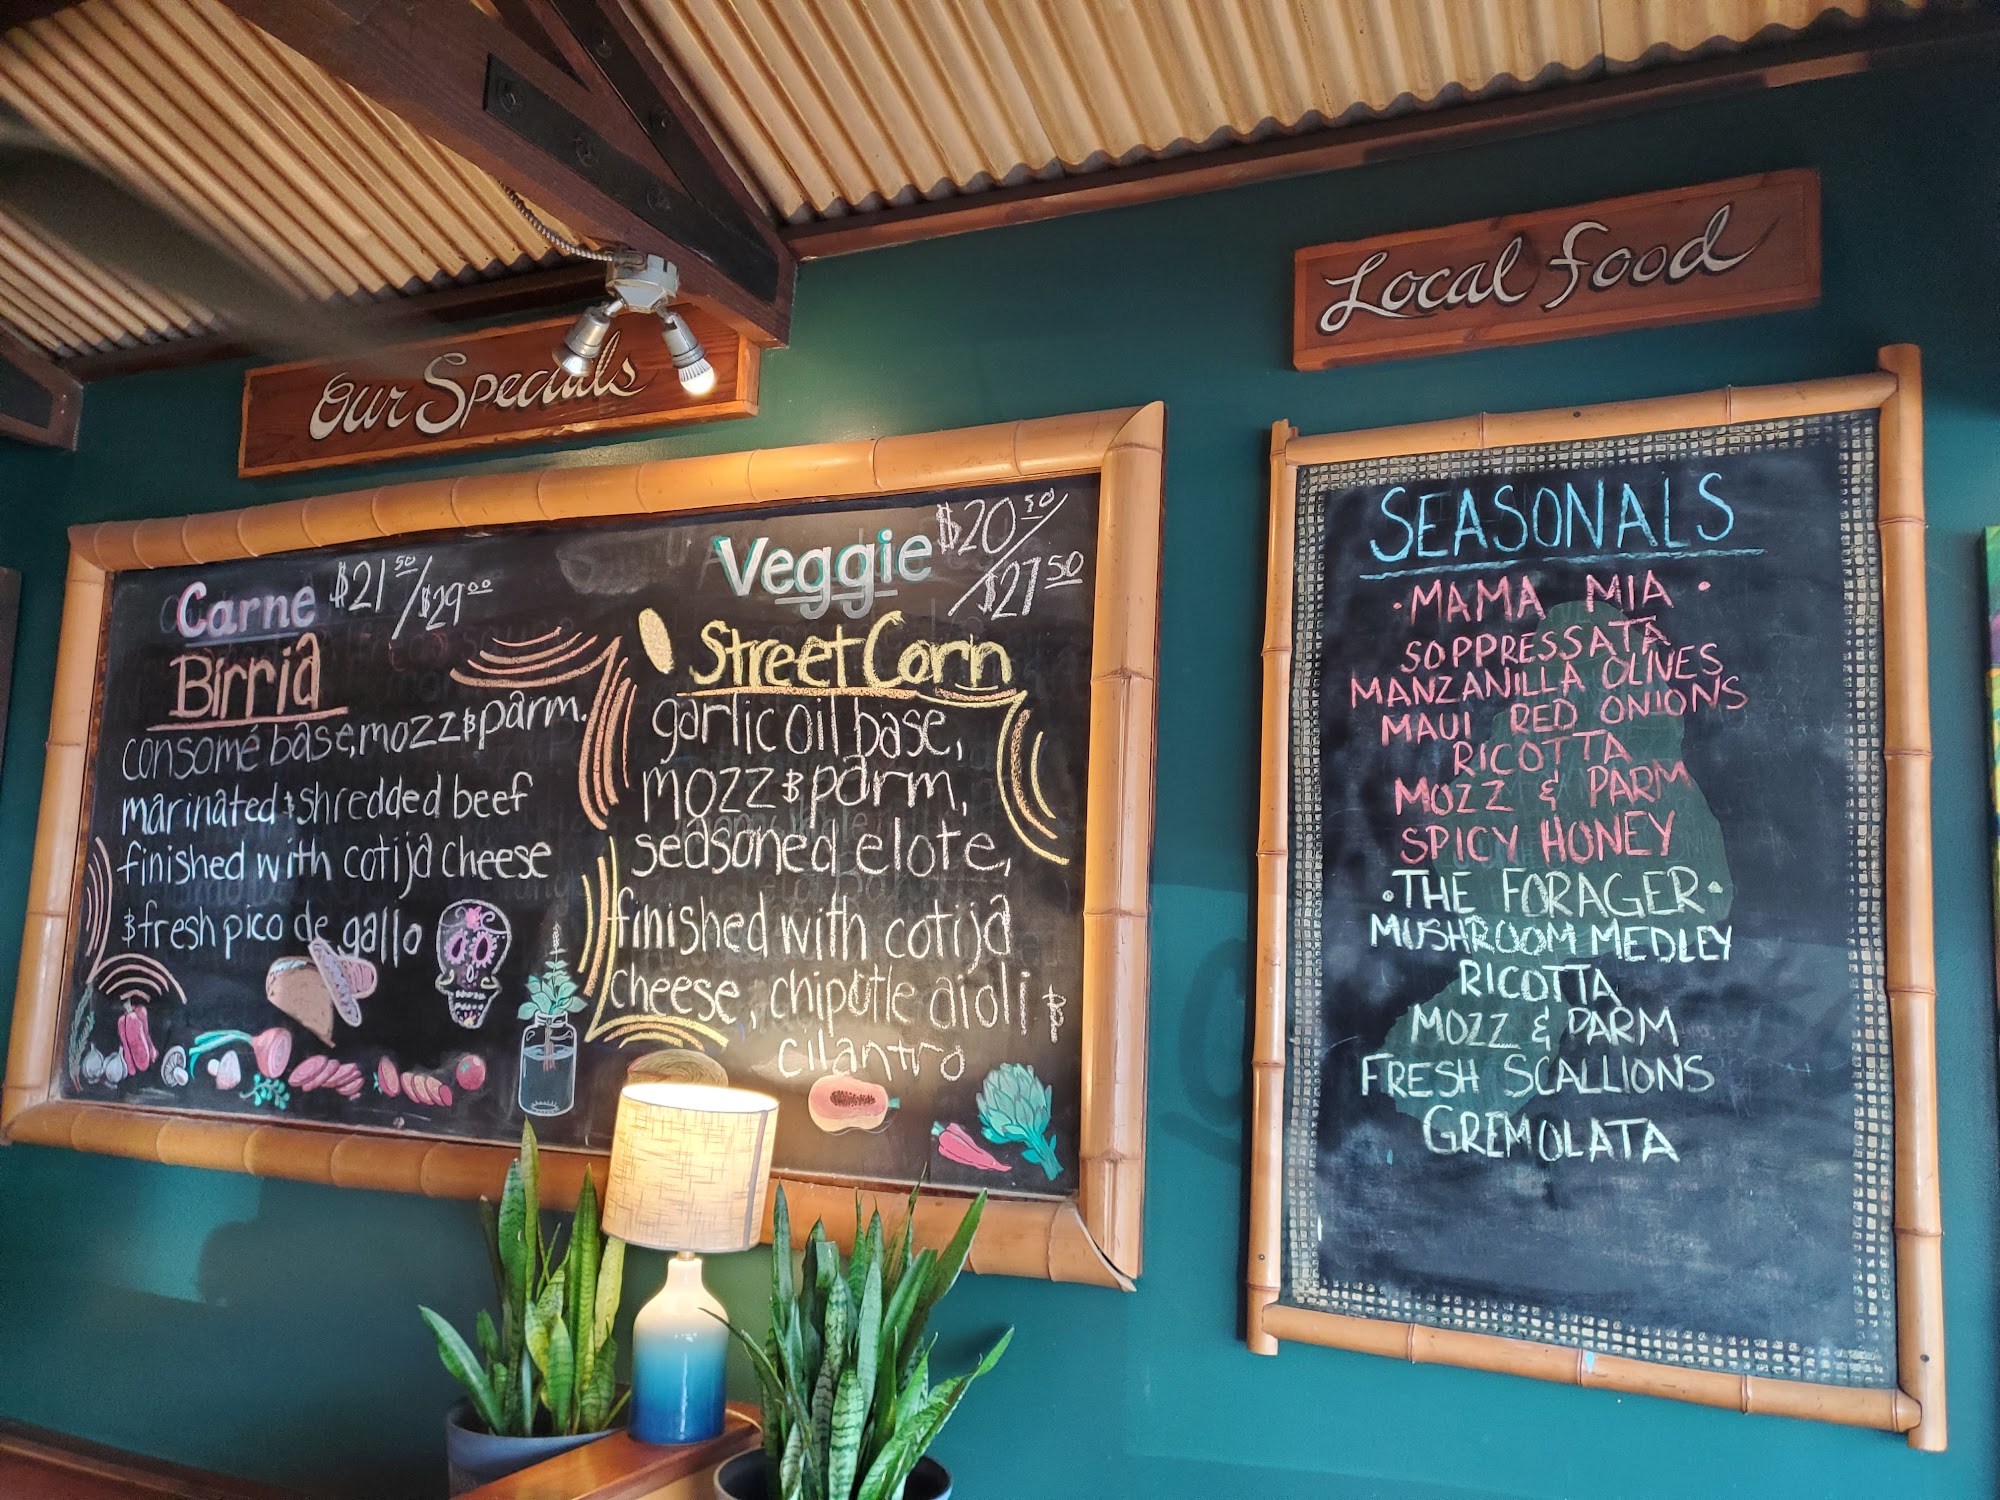 Our Specials
Carne $21 50/$29 00
Birria
consomé base, mozz & parm.
marinated & shredded beef
finished with cotija cheese
& fresh pico de gallo
Veggie $20 50/
$27 50
Street Corn
garlic oil base,
mozz & parm,
seasoned elote,
finished with cotija
cheese, chipotle aioli &
cilantro
Local Food
SEASONALS
• MAMA MIA •
SOPPRESSATA
MANZANILLA OLIVES
MAUI RED ONIONS
RICOTTA
MOZZ & PARM
SPICY HONEY
• THE FORAGER •
MUSHROOM MEDLEY
RICOTTA
MOZZ & PARM
FRESH SCALLIONS
GREMOLATA